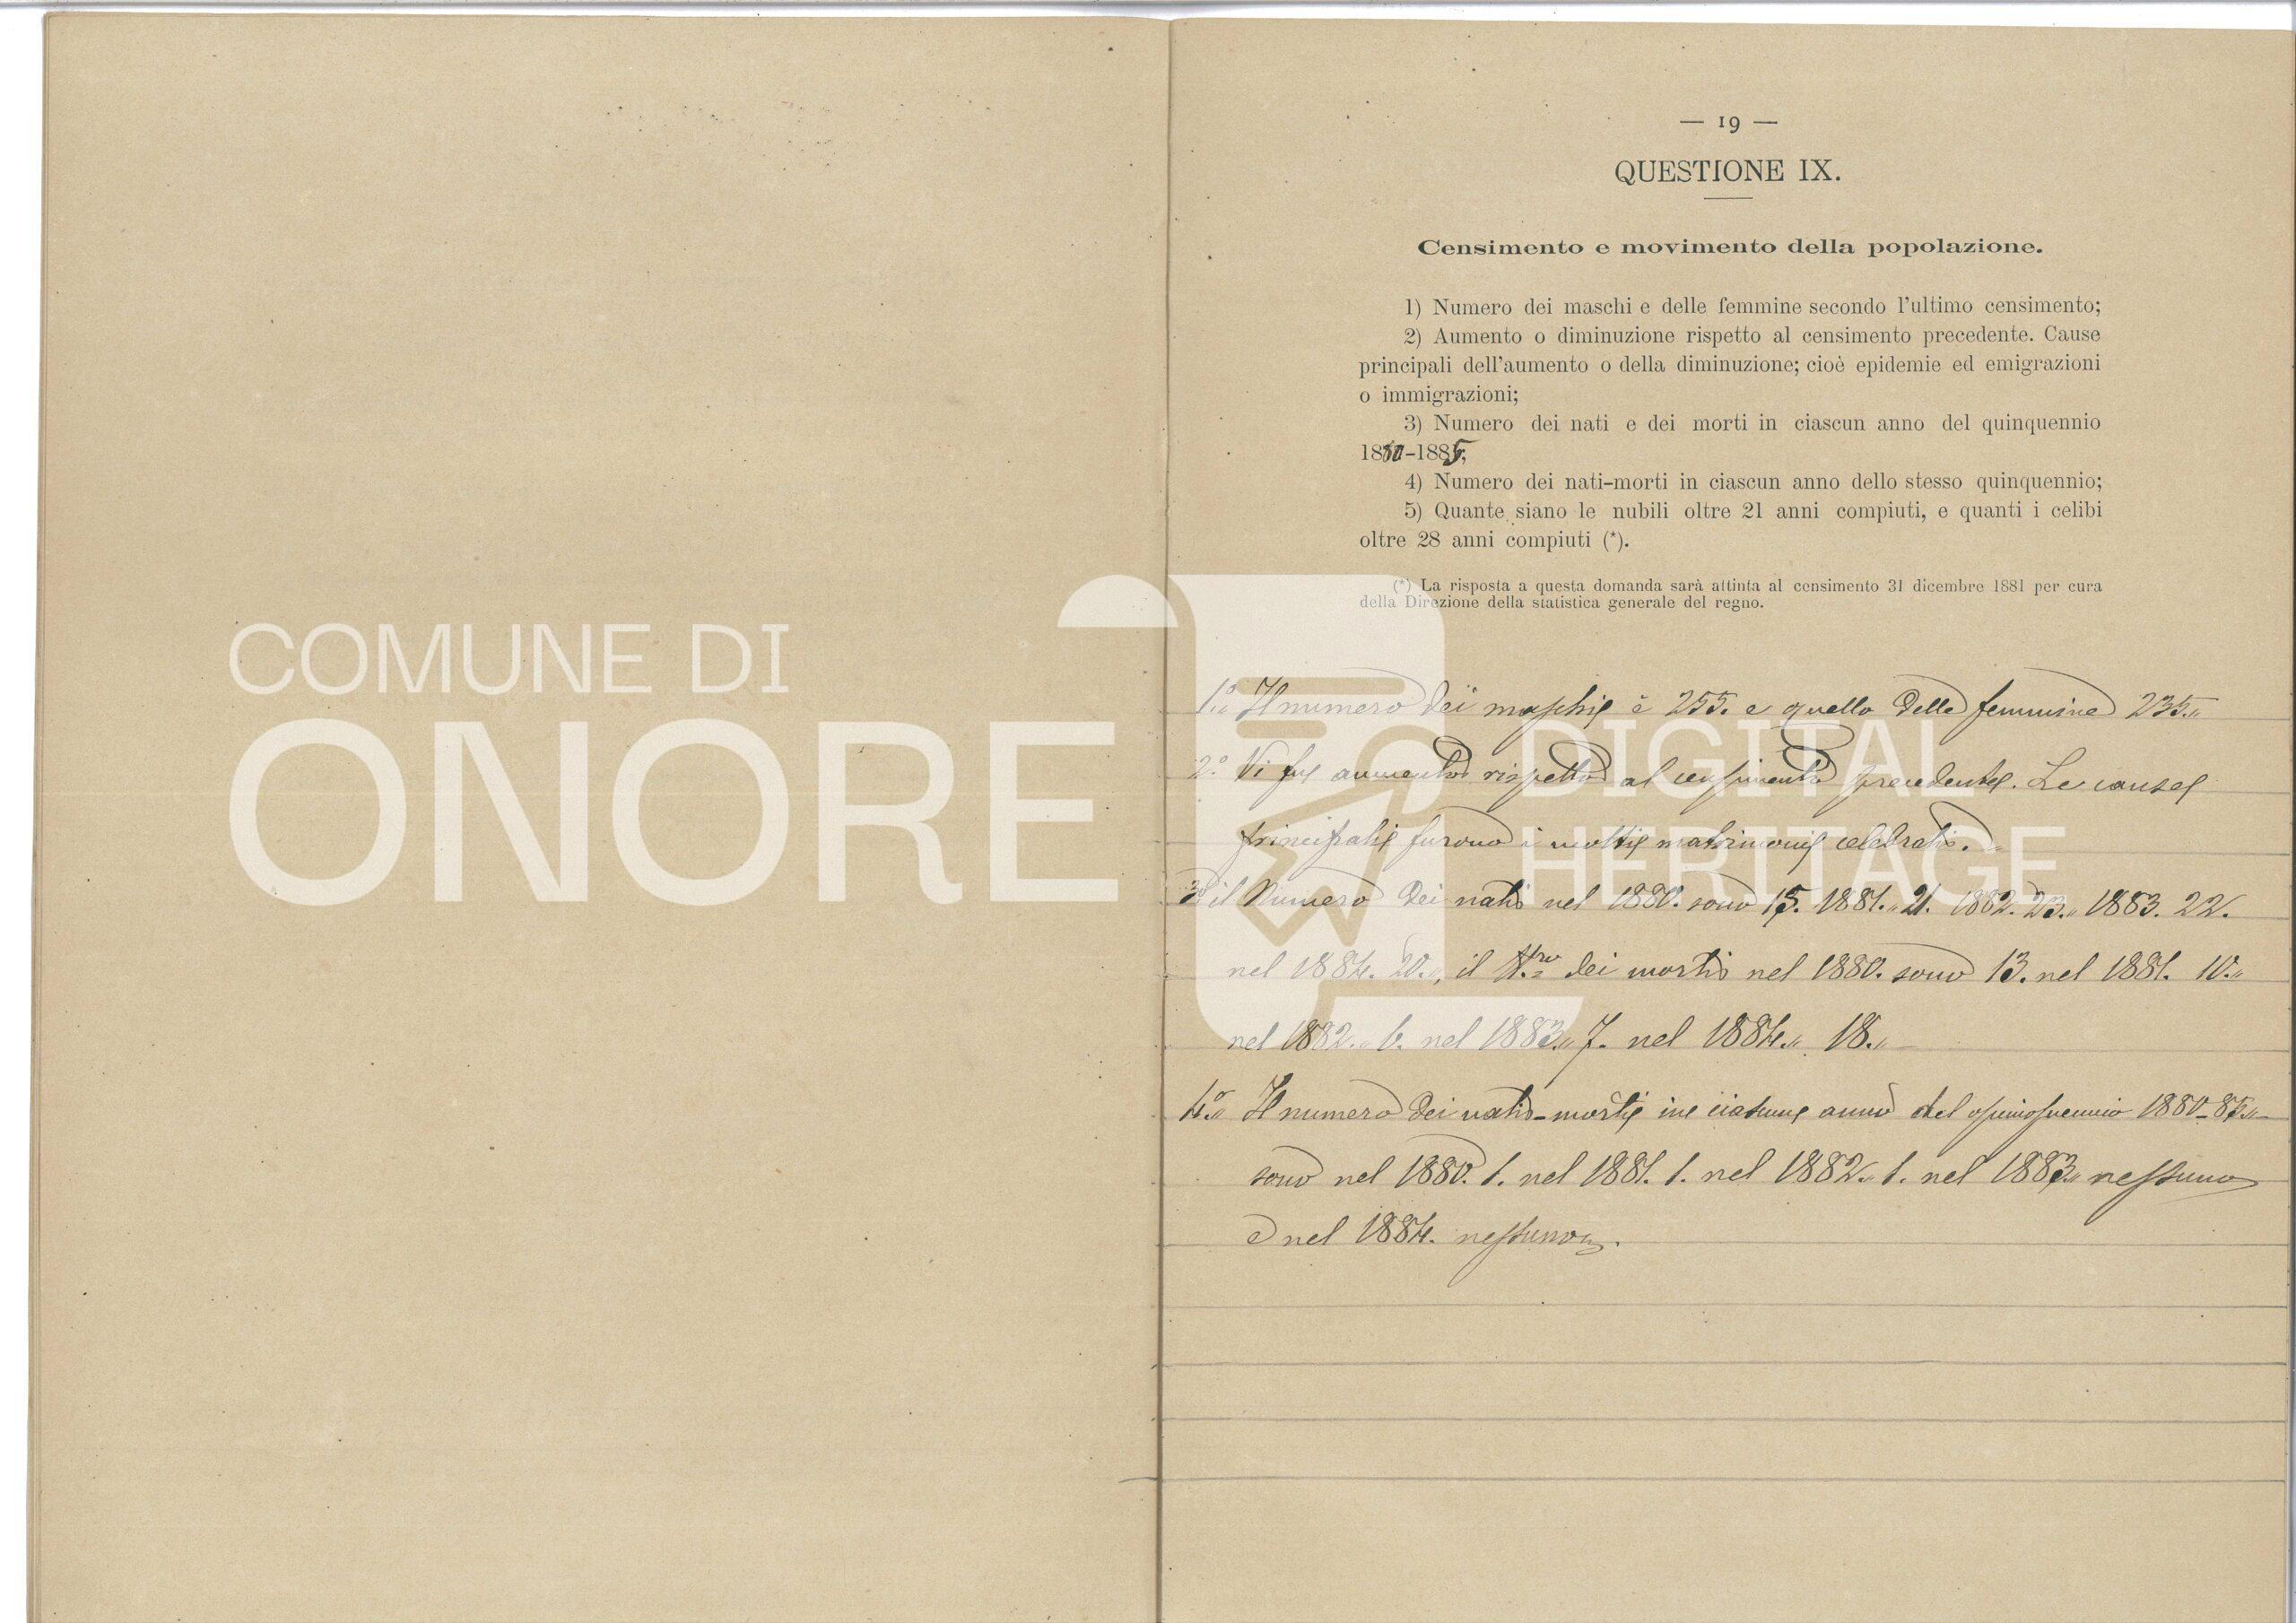 — 19 —
QUESTIONE IX.
Censimento e movimento della popolazione.
1) Numero dei maschi e delle femmine secondo l'ultimo censimento;
2) Aumento o diminuzione rispetto al censimento precedente. Cause
principali dell'aumento o della diminuzione; cioè epidemie ed emigrazioni
o immigrazioni;
3) Numero dei nati e dei morti in ciascun anno del quinquennio
1880-1885;
4) Numero dei nati-morti in ciascun anno dello stesso quinquennio;
5) Quante siano le nubili oltre 21 anni compiuti, e quanti i celibi
oltre 28 anni compiuti (*).
(*) La risposta a questa domanda sarà attinta al censimento 31 dicembre 1881 per cura
della Direzione della statistica generale del regno.
COMUNE DI
ONORE
DIGITAL
HERITAGE
1.° Il numero dei maschi è 255. e quello delle femmine 235.„
2.° Vi fu aumento rispetto al censimento precedente. Le cause
principali furono i molti matrimoni celebrati.
3.° il Numero dei nati nel 1880. sono 15. 1881.„ 21. 1882. 23.„ 1883. 22.
nel 1884. 20.„, il N.ro dei morti nel 1880. sono 13. nel 1881. 10.„
nel 1882.„ 6. nel 1883.„ 7. nel 1884.„ 18.„
4.° Il numero dei nati-morti in ciascun anno del quinquennio 1880-85.„
sono nel 1880. 1. nel 1881. 1. nel 1882.„ 1. nel 1883„ nessuno
e nel 1884. nessuno.